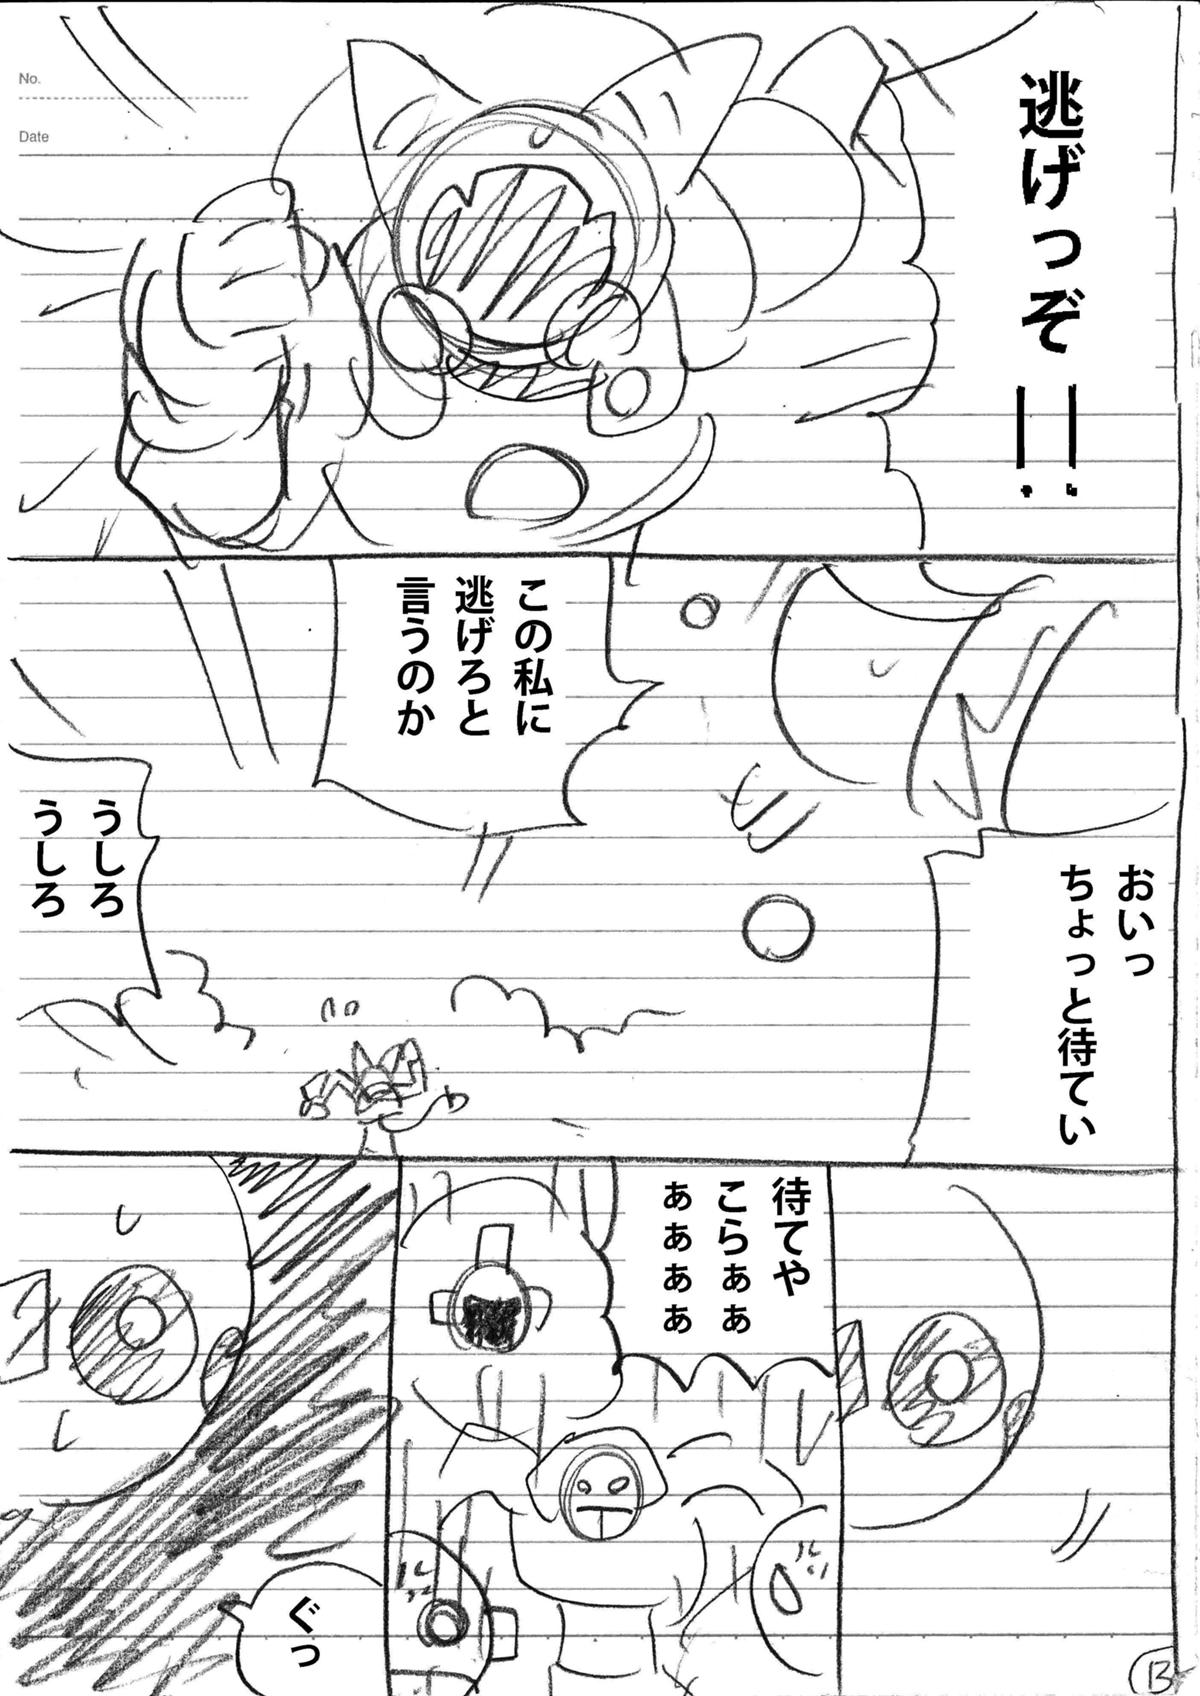 No.
Date
逃げっぞ!!
この私に
逃げろと
言うのか
おいっ
ちょっと待てい
うしろ
うしろ
待てや
こらぁぁ
ぁぁぁぁ
ぐっ
13